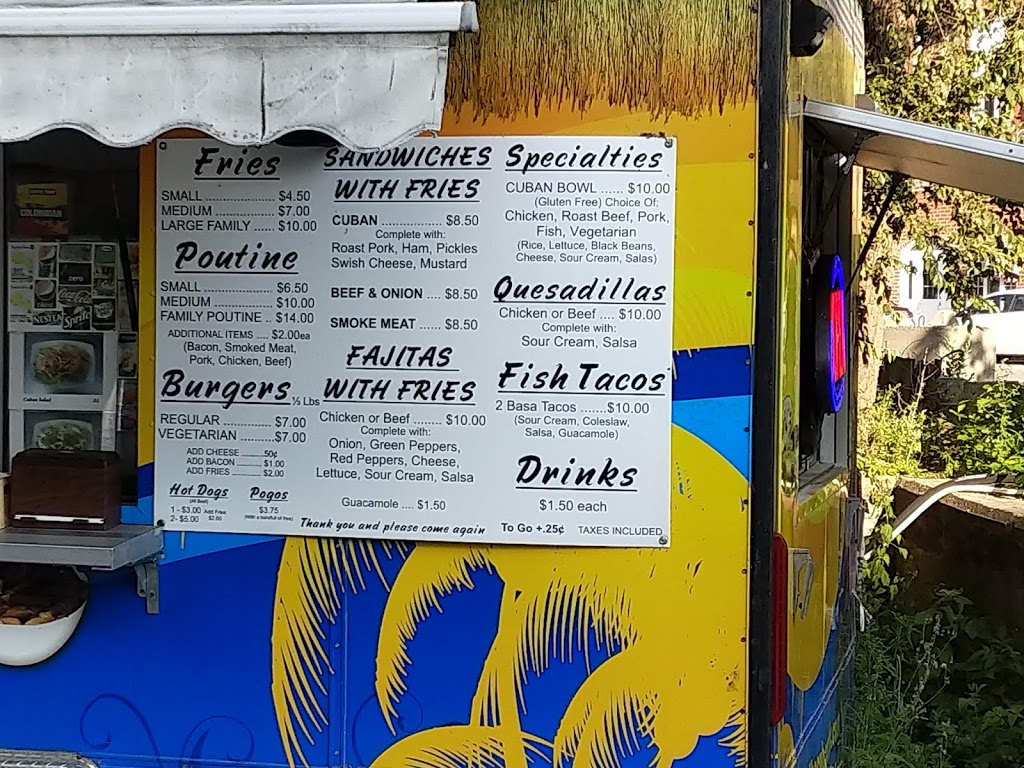 Fries
SMALL ........................ $4.50
MEDIUM ..................... $7.00
LARGE FAMILY ....... $10.00
Poutine
SMALL ........................ $6.50
MEDIUM ................... $10.00
FAMILY POUTINE .. $14.00
ADDITIONAL ITEMS .... $2.00ea
(Bacon, Smoked Meat,
Pork, Chicken, Beef)
Burgers ⅓ Lbs
REGULAR .................. $7.00
VEGETARIAN ..........$7.00
ADD CHEESE .......... 50¢
ADD BACON ......... $1.00
ADD FRIES ............ $2.00
Hot Dogs
(All Beef)
1 - $3.00 Add Fries
2- $5.00 $2.00
Pogos
$3.75
(With a handful of fries)
SANDWICHES
WITH FRIES
CUBAN ................. $8.50
Complete with:
Roast Pork, Ham, Pickles
Swish Cheese, Mustard
BEEF & ONION .... $8.50
SMOKE MEAT ...... $8.50
FAJITAS
WITH FRIES
Chicken or Beef ........ $10.00
Complete with:
Onion, Green Peppers,
Red Peppers, Cheese,
Lettuce, Sour Cream, Salsa
Guacamole .... $1.50
Thank you and please come again
Specialties
CUBAN BOWL ...... $10.00
(Gluten Free) Choice Of:
Chicken, Roast Beef, Pork,
Fish, Vegetarian
(Rice, Lettuce, Black Beans,
Cheese, Sour Cream, Salas)
Quesadillas
Chicken or Beef .... $10.00
Complete with:
Sour Cream, Salsa
Fish Tacos
2 Basa Tacos .......$10.00
(Sour Cream, Coleslaw,
Salsa, Guacamole)
Drinks
$1.50 each
To Go +.25¢ TAXES INCLUDED
COLOMBIAN
zero
Coca-Cola
NESTEA
Sprite
Cuban Salad